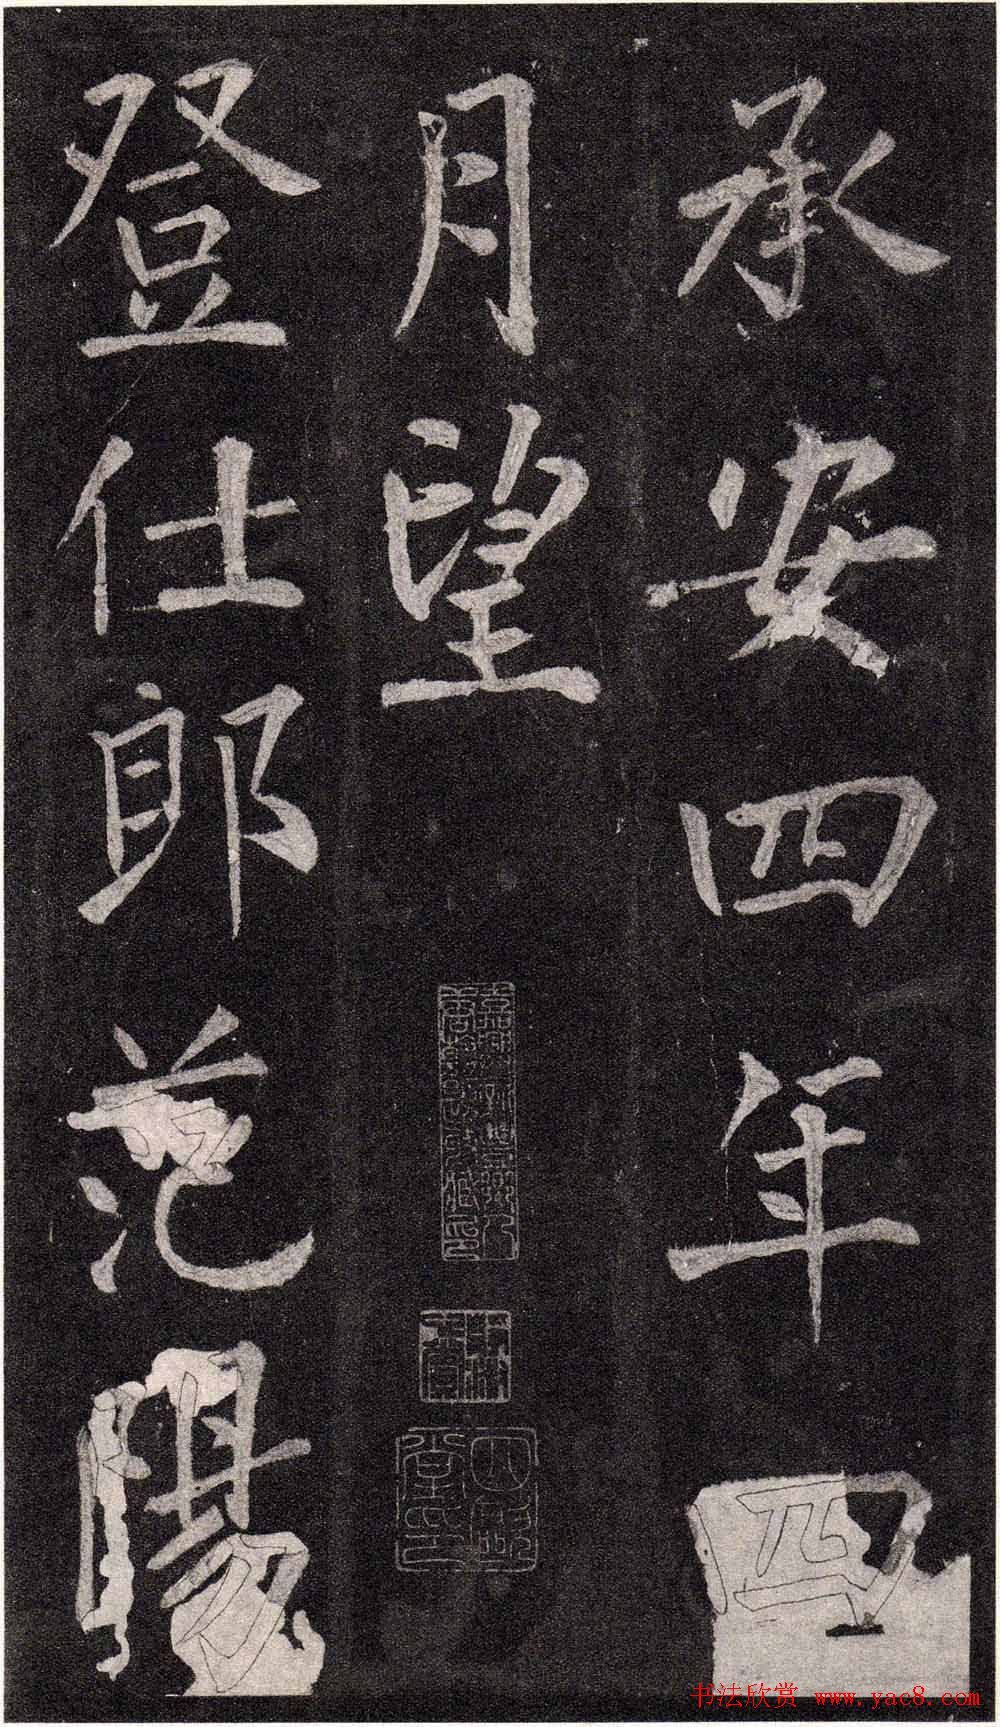 承安四年四
月望
登仕郎范陽
书法欣赏 www.yac8.com